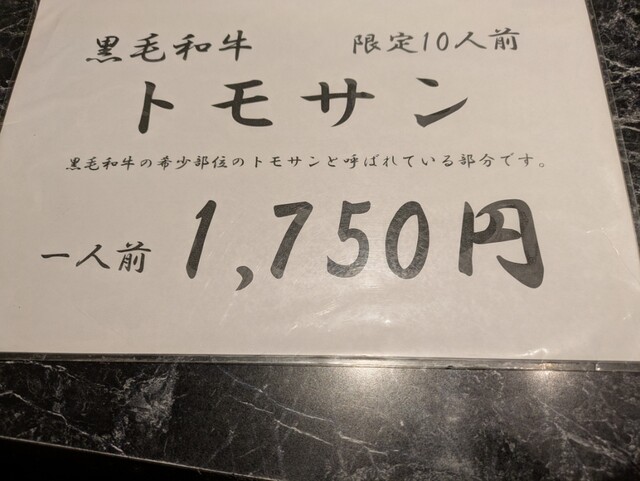 黒毛和牛 限定10人前
トモサン
黒毛和牛の希少部位のトモサンと呼ばれている部分です。
一人前 1,750円